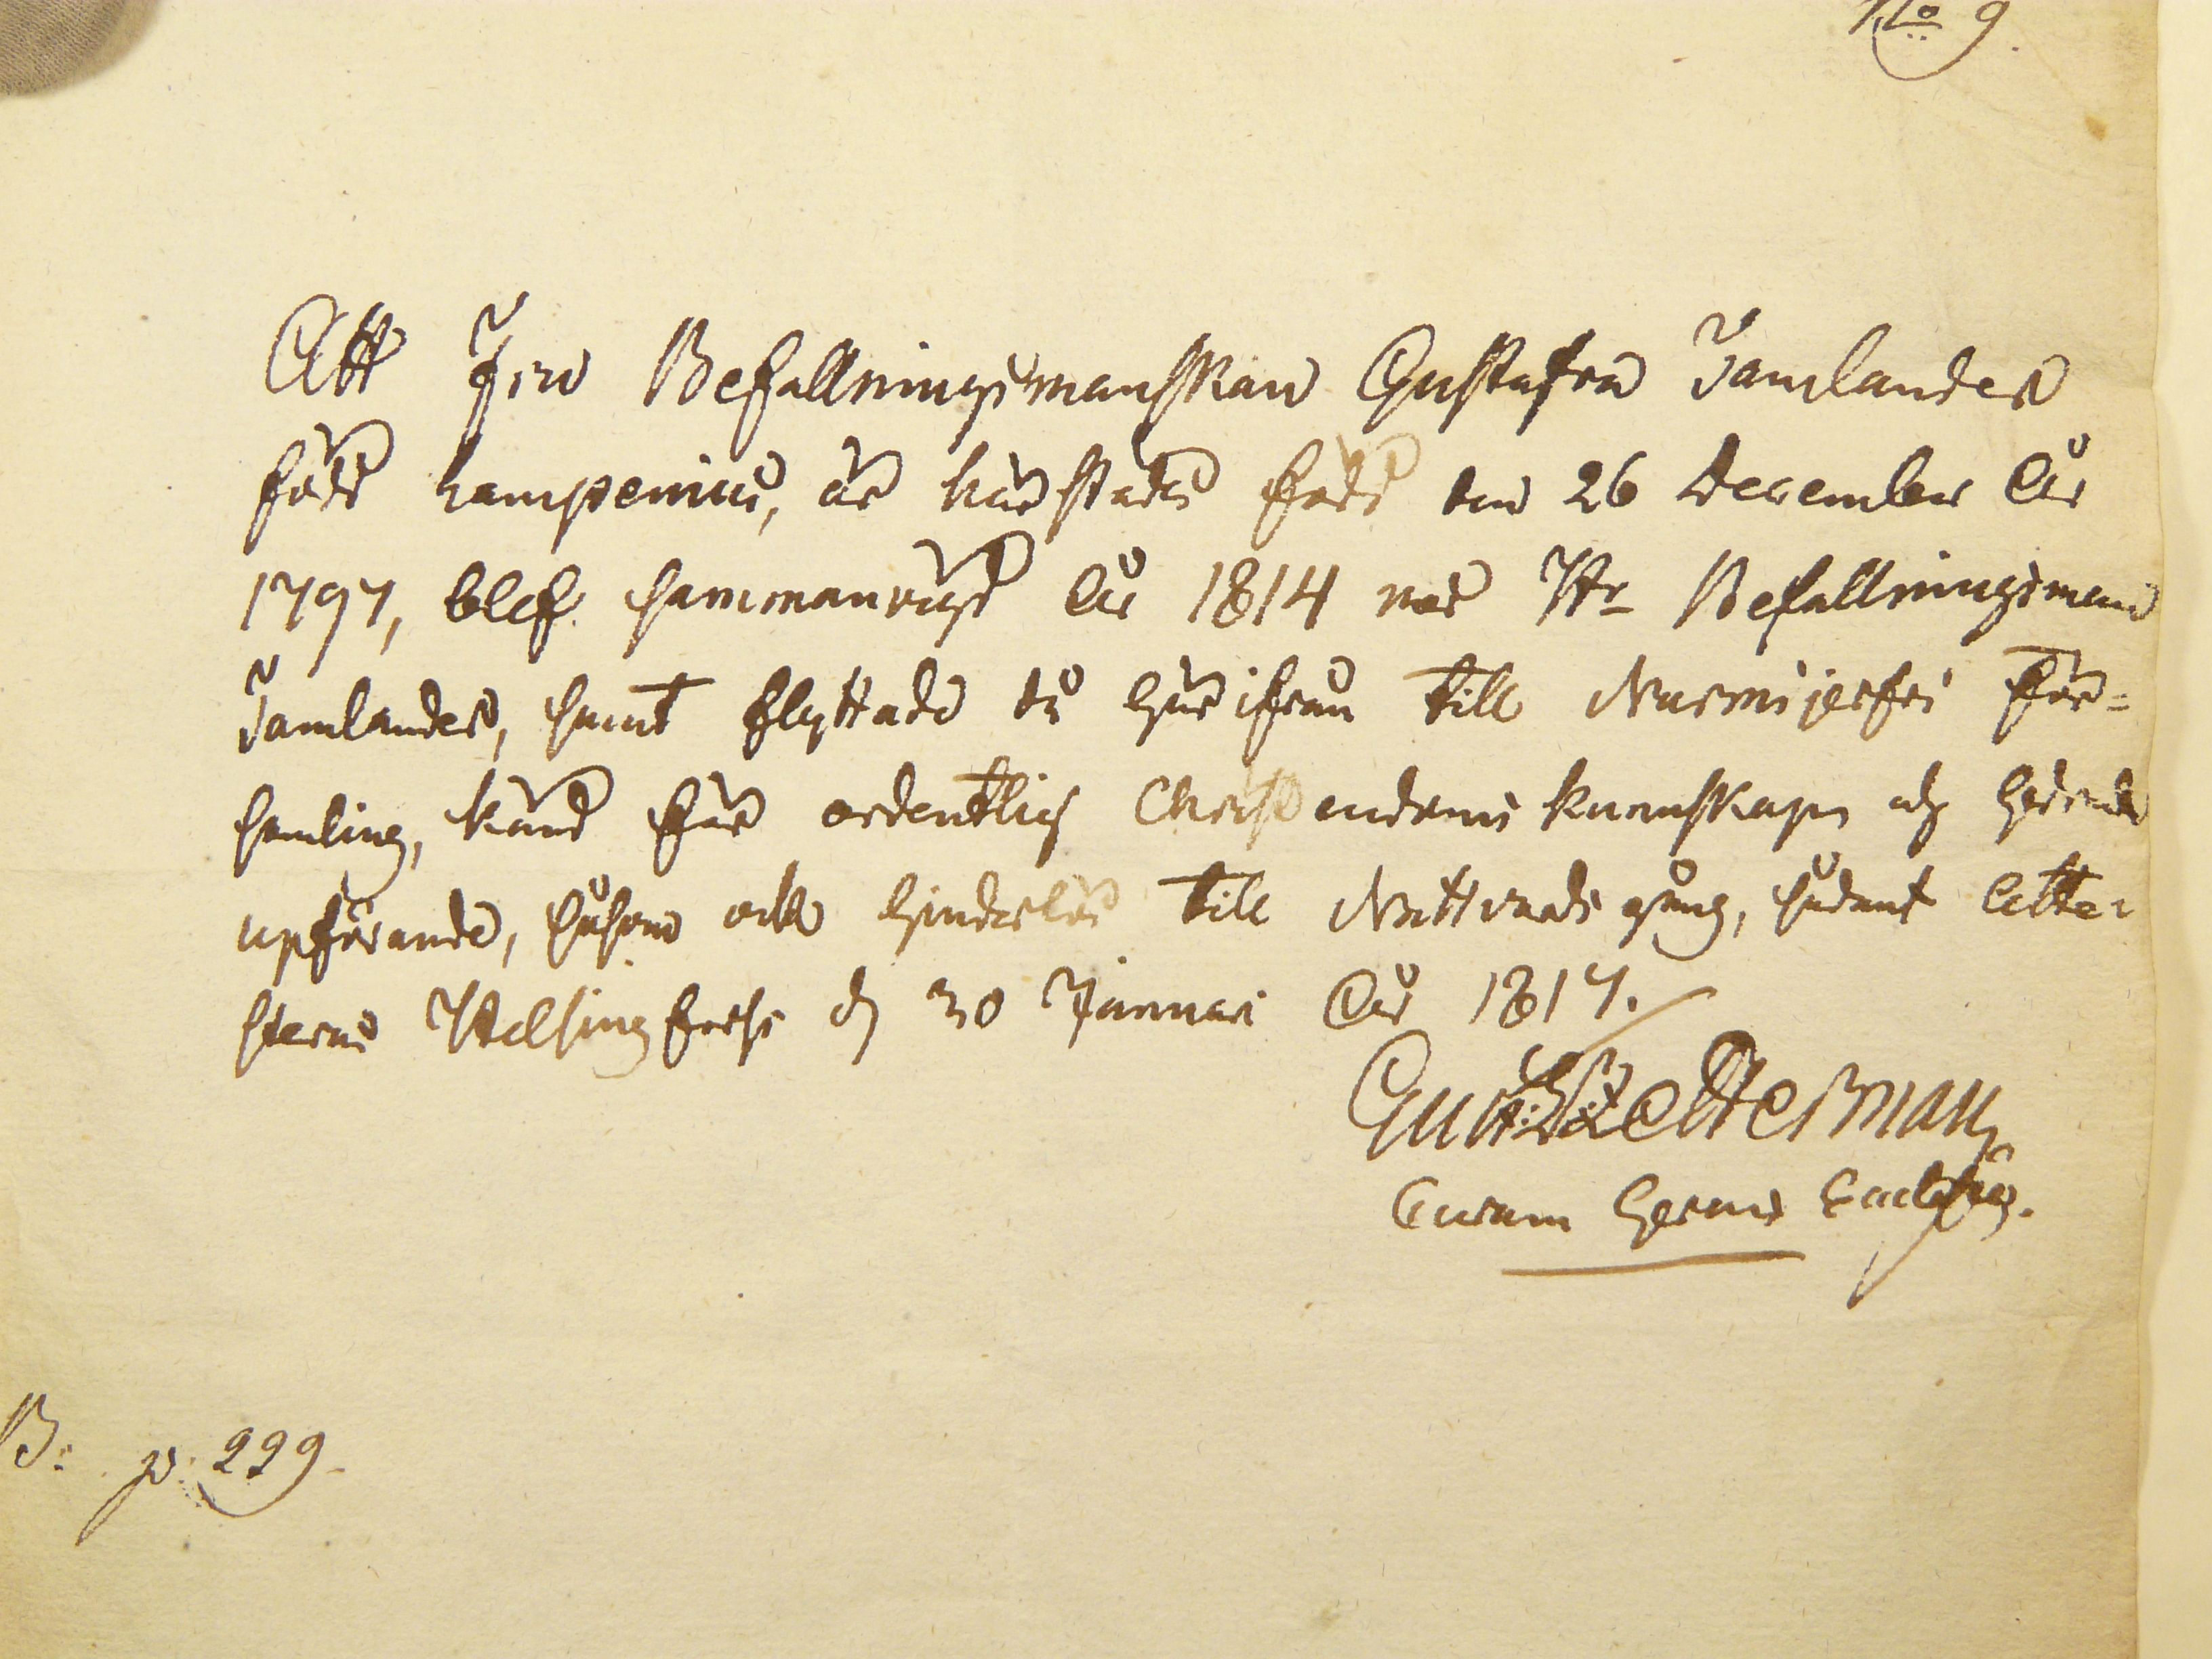 No 9.
Att Fru Befallningsmanskan Gustafva Jamlander
född Kampenius, är härstädes född den 26 December År
1797, blef sammanvigd År 1814 med Hr Befallningsman
Jamlander, samt flyttade då härifrån till Nurmijerfvi För=
samling, känd för ordentelig Christendoms kunskap och
upförande, såsom ock hinderlös till Nattvards gång, sådant Atte=
steras Helsingfors d 30 Januari År 1817.
Gust: Zetterman
B: p. 299.